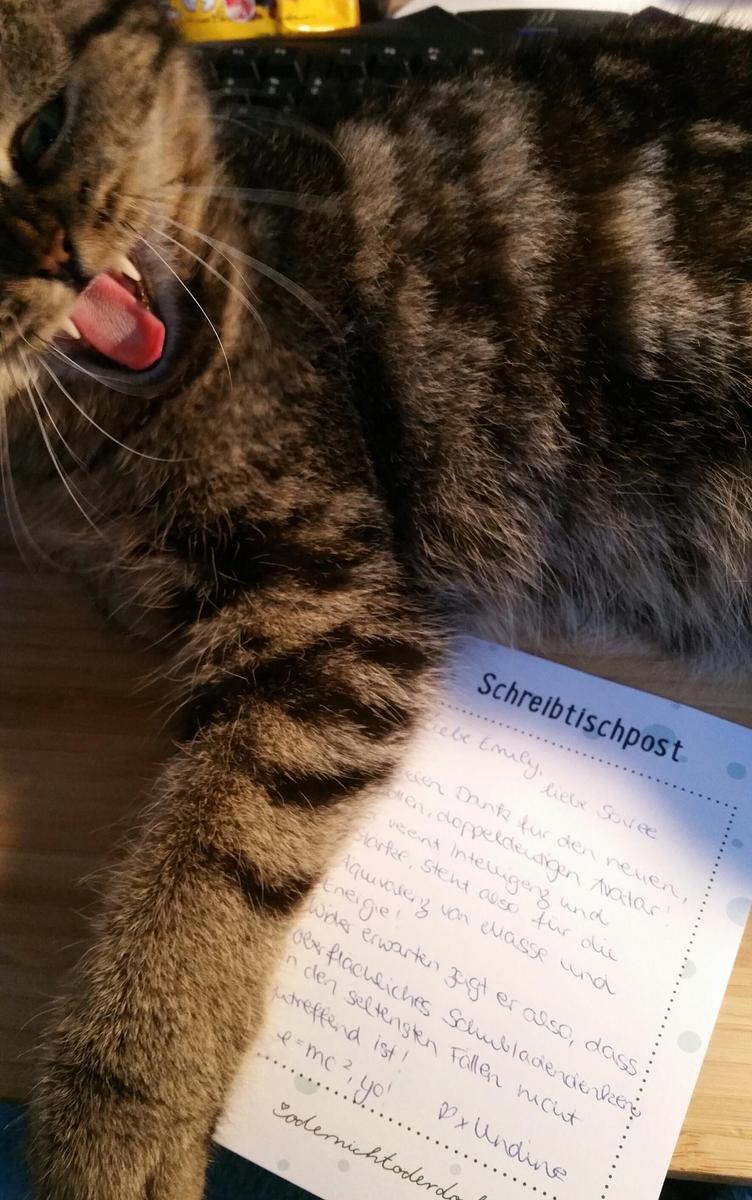 Schreibtischpost
iebe Emily, liebe Soiree
elen Dank für den neuen,
ollen, doppeldeutigen Avatar!
vereint Intelligenz und
Stärke, steht also für die
Äquivalenz von Masse und
Energie!
Wider erwarten zeigt er also, dass
oberflächliches Schubladendenken
n den seltensten Fällen nicht
zutreffend ist!
e=mc², yo!
♡ x Undine
odernichtoderdoc